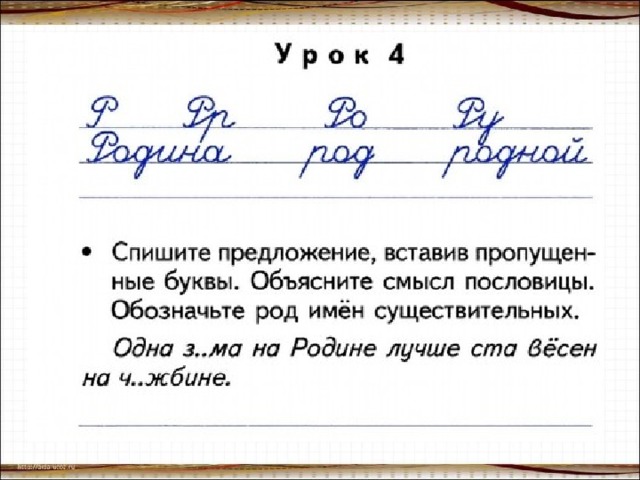 Урок 4
Р Рр Ро Ру
Родина род родной
• Спишите предложение, вставив пропущен-
ные буквы. Объясните смысл пословицы.
Обозначьте род имён существительных.
Одна з..ма на Родине лучше ста вёсен
на ч..жбине.